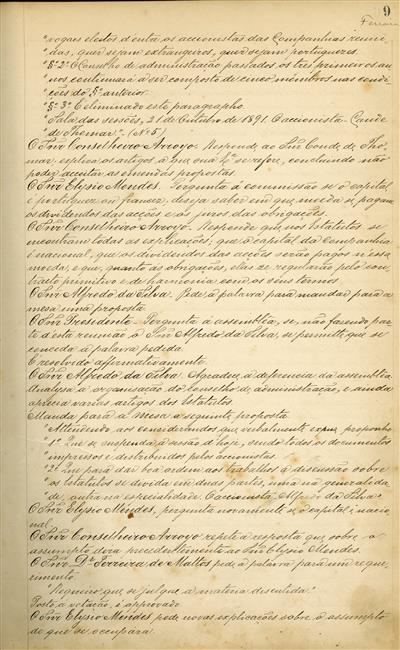 9
Ferreira
"vogaes eleitos d'entre os accionistas das Companhias reuni-
"das, quer sejam extrangeiros, quer sejam portuguezes.
"§ 2º O Conselho de administração passados os tres primeiros an-
nos continuará a ser composto de cinco membros nas condi-
ções do §º anterior.
"§ 3º É eliminado este paragrapho.
"Sala das sessões, 21 de Outubro de 1891. O accionista Conde
"de Thomar". (Nº 5)
O Snr Conselheiro Arroyo. Responde ao Snr Conde de Tho-
mar, explica os artigos a que sua Exª se refere, concluindo não
poder acceitar as emendas propostas.
O Snr Elysio Mendes. Pergunta á commissão se o capital
é portuguez ou francez, deseja saber em que moeda se pagam
os dividendos das acções e os juros das obrigações.
O Snr Conselheiro Arroyo. Responde que nos Estatutos se
encontram todas as explicações, que o capital da Companhia
é nacional, que os dividendos das acções serão pagos n'essa
moeda, e que, quanto ás obrigações, ellas se regularão pelo con-
tracto primitivo e de harmonia com os seus termos.
O Snr Alfredo da Silva. Pede a palavra para mandar para a
mesa uma proposta.
O Snr Presidente. Pergunta á assembléa, se, não fazendo par-
te d'esta reunião o Snr Alfredo da Silva, se permitte que se
conceda a palavra pedida.
Crescendo affirmativamente.
O Snr Alfredo da Silva. Agradece a deferencia da assembléa.
Analysa a organisação do Conselho de administração, e ainda
aprecia varios artigos dos Estatutos.
Manda para a Mesa a seguinte proposta
"Attendendo aos considerandos que verbalmente expuz, proponho
"1º Que se suspenda a sessão d'hoje, sendo todos os documentos
"impressos e distribuidos pelos accionistas.
"2º Que para dar boa ordem aos trabalhos a discussão sobre
"os Estatutos se divida em duas partes, uma na generalida-
"de, outra na especialidade. O accionista Alfredo da Silva".
O Snr Elysio Mendes, pergunta novamente se o capital é nacio-
nal.
O Snr Conselheiro Arroyo repete a resposta que sobre o
assumpto dera precedentemente ao Snr Elysio Mendes.
O Snr Dr Ferreira de Mattos pede a palavra para um reque-
rimento.
"Requeiro que se julgue a materia discutida".
Posto á votação, é approvado.
O Snr Elysio Mendes pede novas explicações sobre o assumpto
de que se occupara.